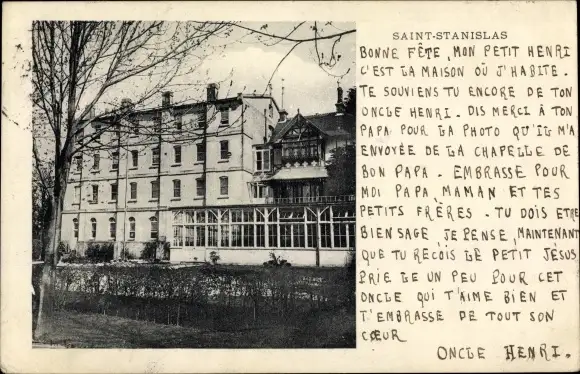 SAINT-STANISLAS
BONNE FÊTE, MON PETIT HENRI
C'EST LA MAISON OÙ J'HABITE.
TE SOUVIENS TU ENCORE DE TON
ONCLE HENRI. DIS MERCI À TON
PAPA POUR LA PHOTO QU'IL M'A
ENVOYÉE DE LA CHAPELLE DE
BON PAPA. EMBRASSE POUR
MOI PAPA, MAMAN ET TES
PETITS FRÈRES. TU DOIS ETRE
BIEN SAGE JE PENSE, MAINTENANT
QUE TU REÇOIS LE PETIT JÉSUS
PRIE LE UN PEU POUR CET
ONCLE QUI T'AIME BIEN ET
T'EMBRASSE DE TOUT SON
CŒUR
ONCLE HENRI.